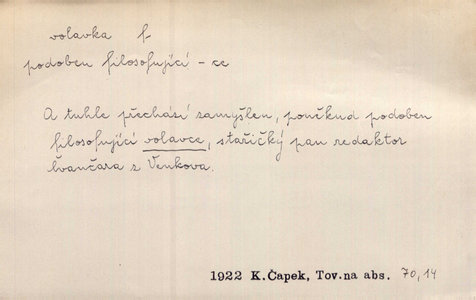 volavka f
podoben filosofující - ce
A tuhle přechází zamyšlen, poněkud podoben
filosofující volavce, stařičký pan redaktor
Švančara z Venkova.
1922 K.Čapek, Tov.na abs. 70,14